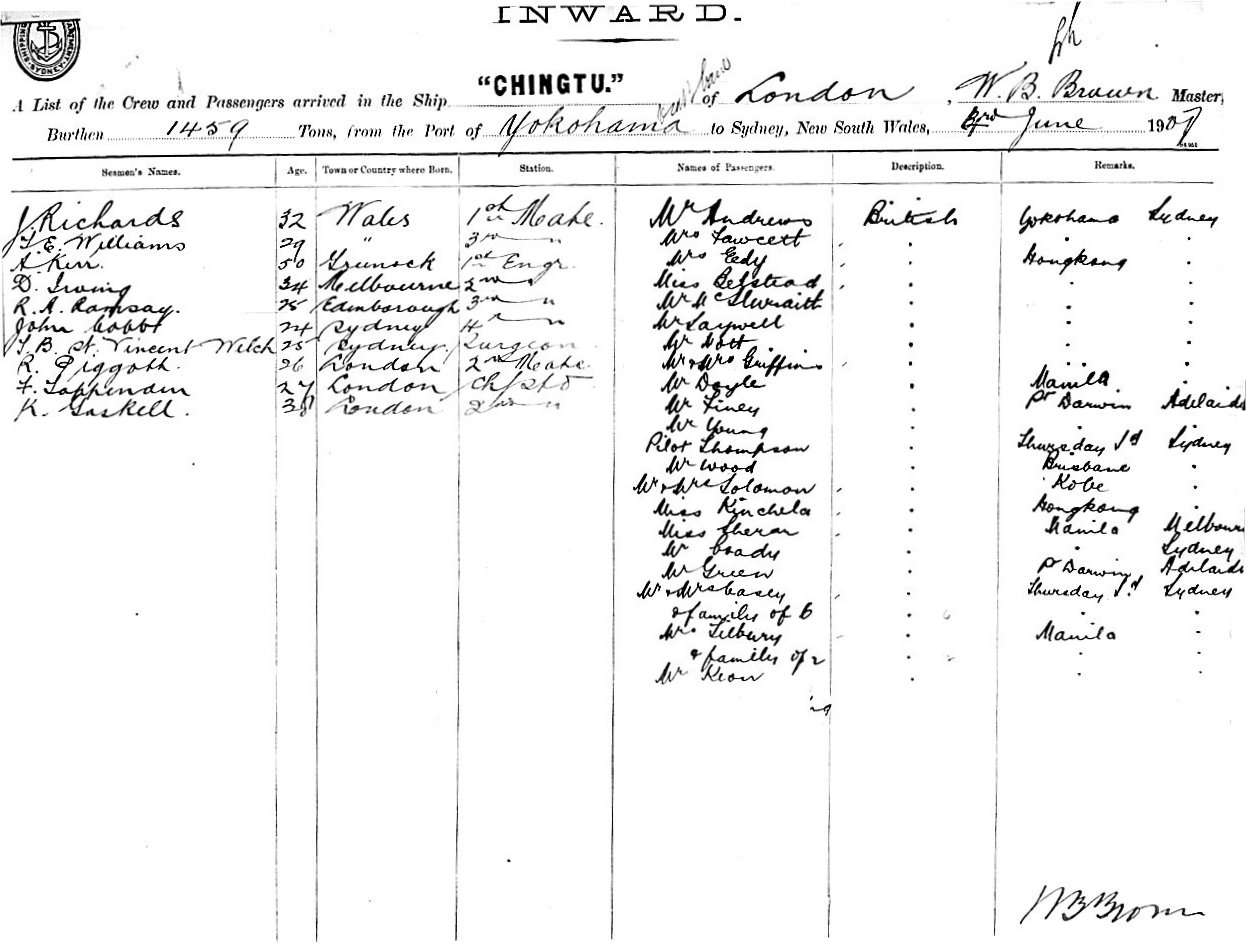 INWARD.
SHIPPING SYDNEY
"CHINGTU."
A List of the Crew and Passengers arrived in the Ship "CHINGTU." of London, W. B. Brown Master,
Burthen 1459 Tons, from the Port of Yokohama to Sydney, New South Wales, June 190
Seamen's Names. Age. Town or Country where Born. Station. Names of Passengers. Description. Remarks.
J. Richards 32 Wales 1st Mate. Mr Andrews British Yokohama Sydney
T. E. Williams 29 " 3rd " Mrs Fawcett
A. Kerr. 50 Grunock 1st Engr. Mrs Eedy Hongkong
D. Irving 34 Melbourne 2nd " Miss Belstead
R. A. Ramsay. 25 Edinborough 3rd " Mr McIlwraith
John Cobbt 24 Sydney 4th " Mr Saywell
T. B. St. Vincent Welch 25 Sydney. Surgeon Mr Nott
R. Piggoth. 26 London 2nd Mate. Mr & Mrs Griffins
F. Tappenden 27 London Ch/Std Mr Doyle Manila
K. Gaskell. London 2nd " Mr Finey Pt Darwin Adelaide
Mr Young
Pilot Thompson Thursday Id Sydney
Mr Wood Brisbane
Mr & Mrs Solomon Kobe
Miss Kinchela Hongkong
Miss Manila Melbourn
Mr Coady Sydney
Mr Green Pt Darwin Adelaide
Mr & Mrs Casey Thursday Id Sydney
& families of 6 6
Mrs Tilbury Manila
& families of 2 2
Mr Keon
29
W B Brown